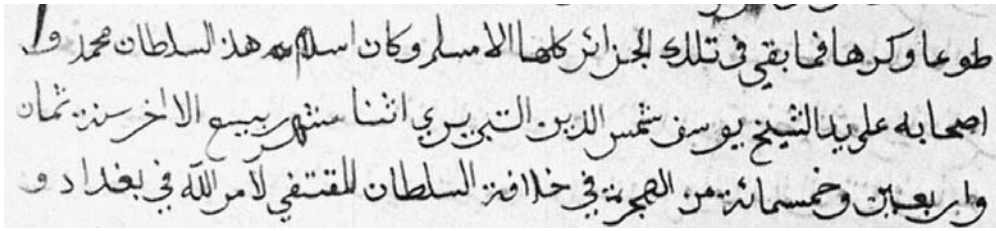 طوعا وكرها فما بقي في تلك الجزائر كلها الا مسلم وكان اسلام هذ السلطان محمد و
اصحابه على يد الشيخ يوسف شمس الدين التبريزي اثنا شهر ربيع الاخر سنة ثمان
واربعين وخمسمائة من الهجرة في خلافة السلطان المقتفي لامر الله في بغداد و